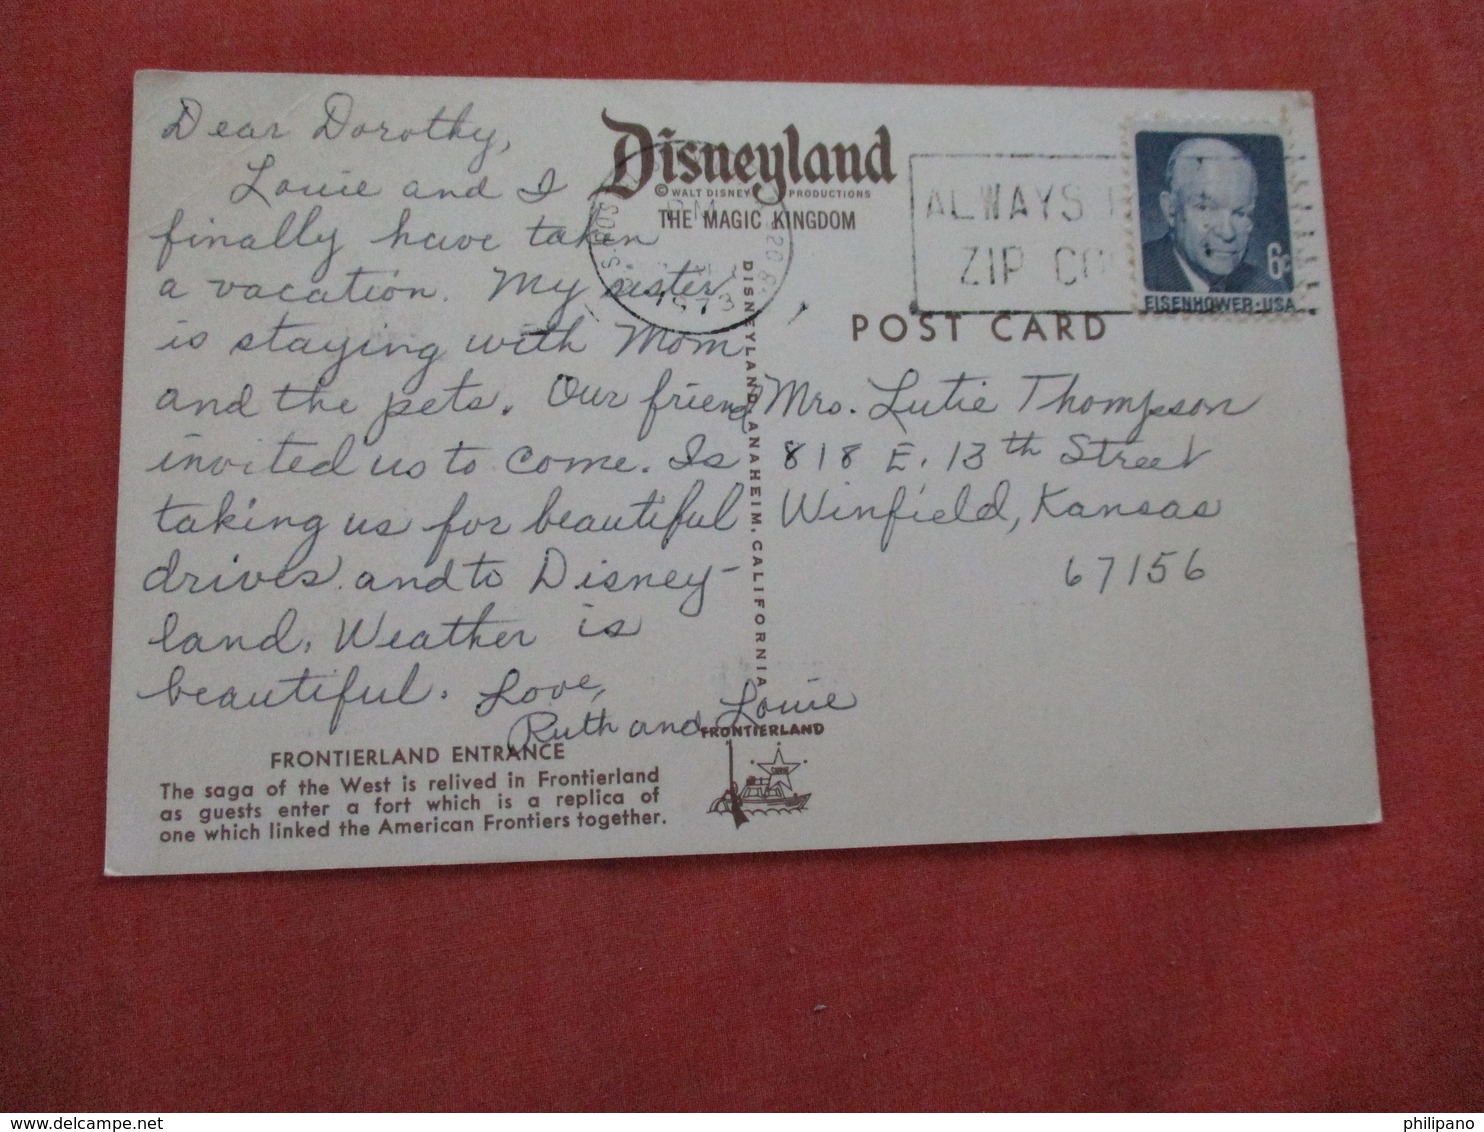 Dear Dorothy,
Louie and I
finally have taken
a vacation. My sister
is staying with Mom
and the pets. Our friend
invited us to come. Is
taking us for beautiful
drives and to Disney-
land. Weather is
beautiful. Love,
Ruth and Louie
FRONTIERLAND ENTRANCE
The saga of the West is relived in Frontierland
as guests enter a fort which is a replica of
one which linked the American Frontiers together.
Disneyland
© WALT DISNEY PRODUCTIONS
THE MAGIC KINGDOM
PM
1973
DISNEYLAND, ANAHEIM, CALIFORNIA
FRONTIERLAND
ALWAYS
ZIP
6¢
EISENHOWER·USA
POST CARD
Mrs. Lutie Thompson
818 E. 13th Street
Winfield, Kansas
67156
philipano
delcampe.net